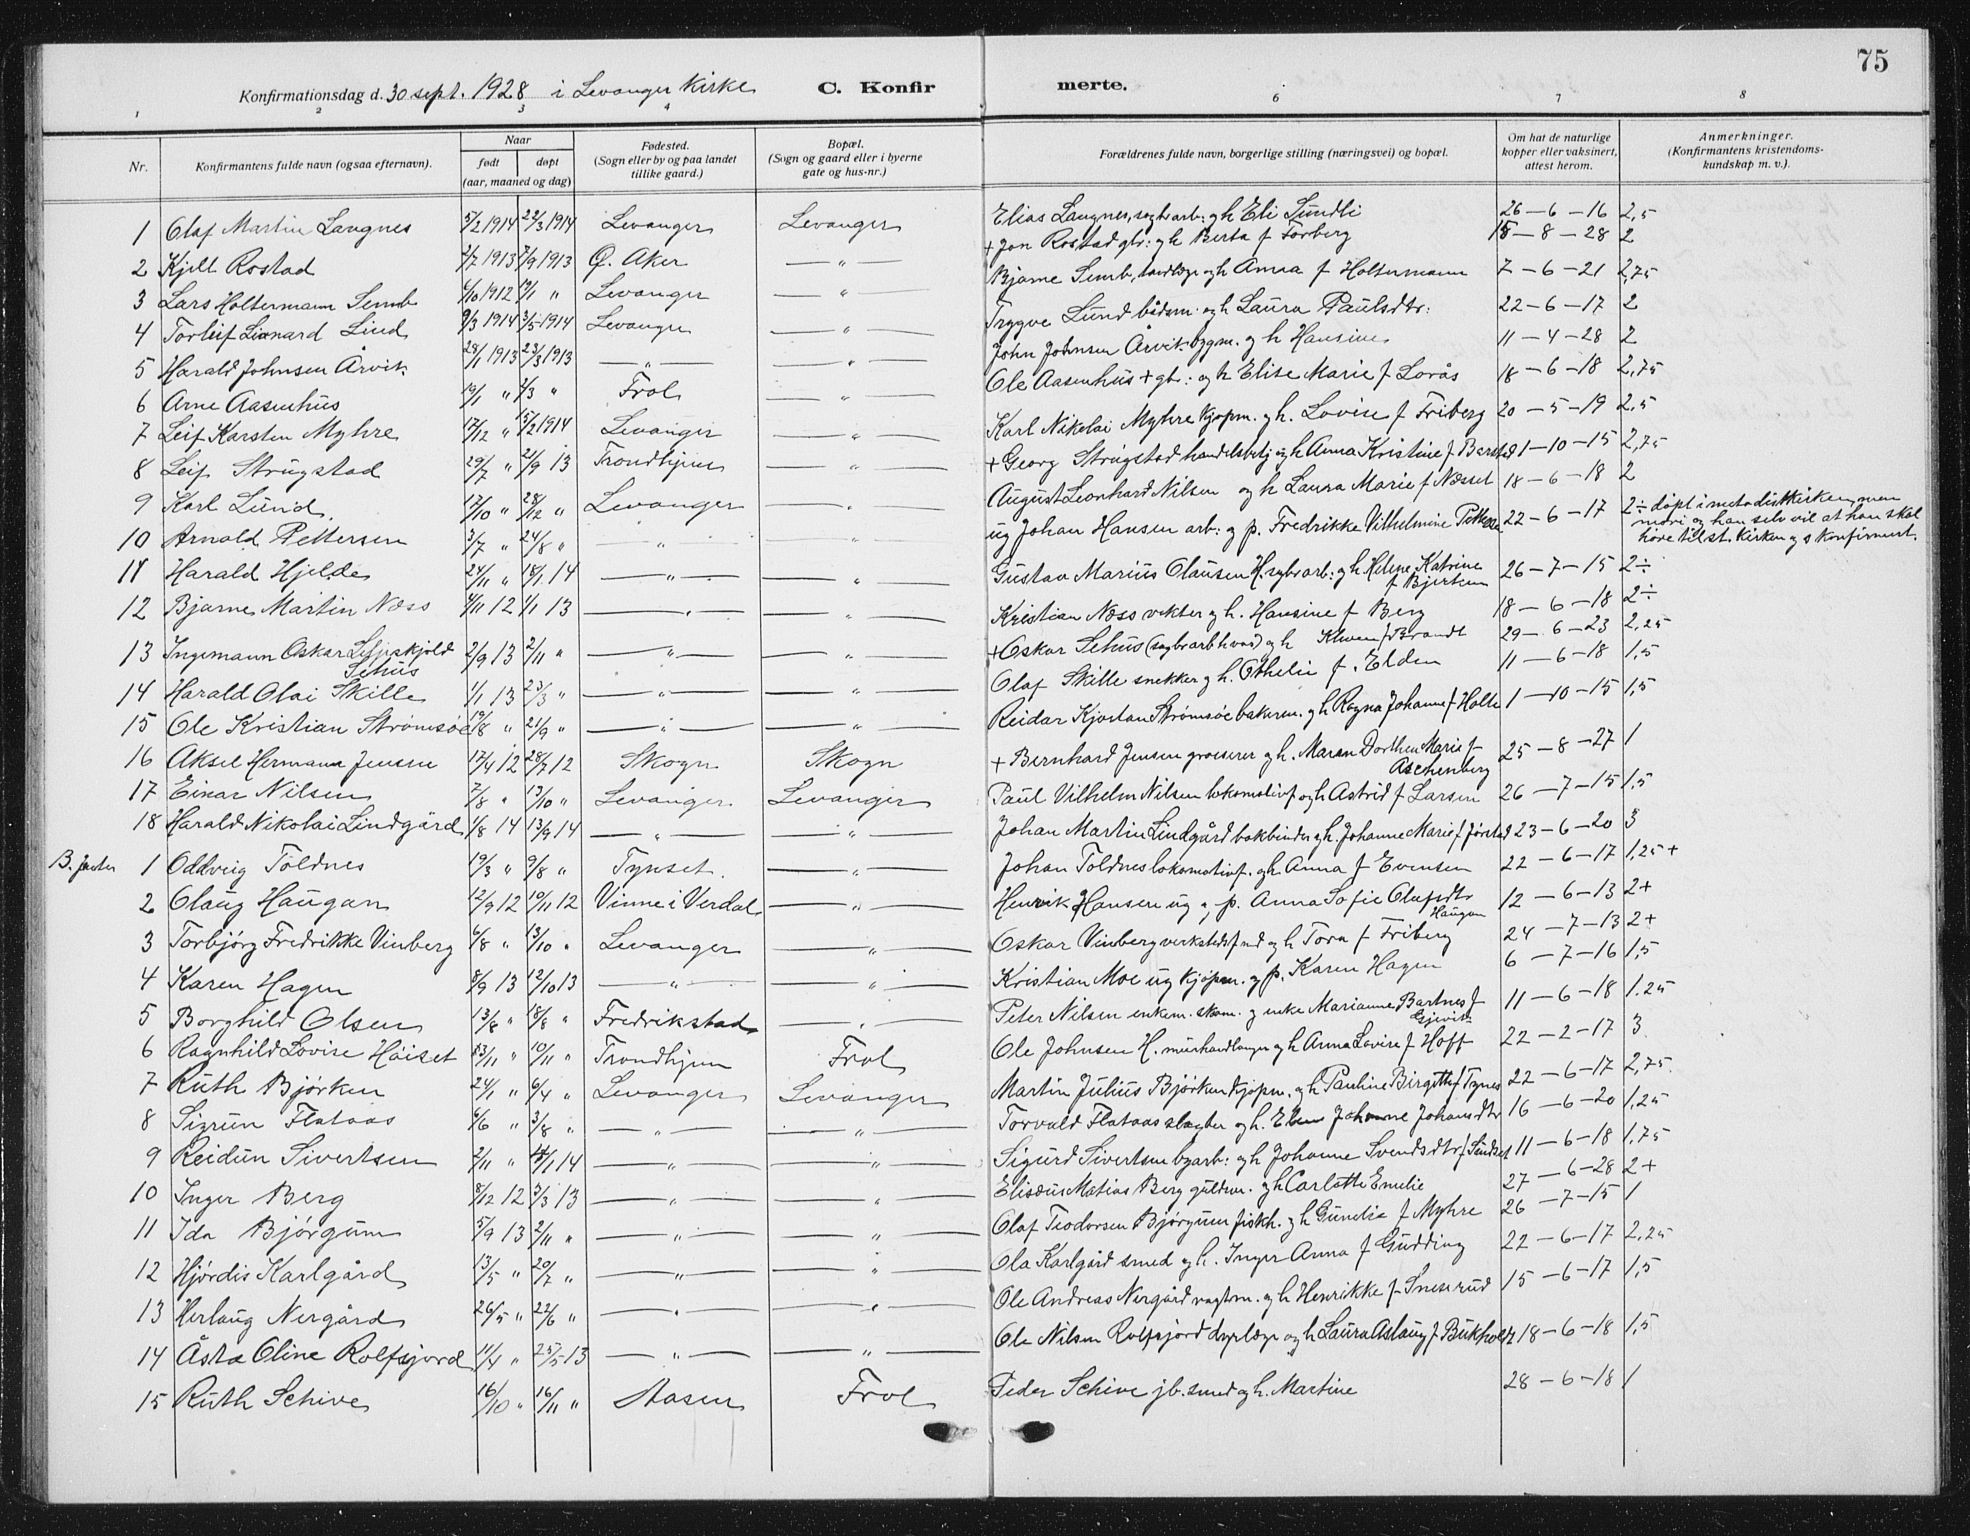 75
Konfirmationsdag d. 30 sept. 1928 i Levanger Kirke C. Konfirmerte.
1 2 3 4 6 7 8
Nr. Konfirmantens fulde navn (ogsaa efternavn). Naar født døpt (aar, maaned og dag) Fødested. (Sogn eller by og paa landet tillike gaard.) Bopæl. (Sogn og gaard eller i byerne gate og hus-nr.) Forældrenes fulde navn, borgerlige stilling (næringsvei) og bopæl. Om hat de naturlige kopper eller vaksinert, attest herom. Anmerkninger. (Konfirmantens kristendomskundskap m. v.).
1 Olaf Martin Langnes 5/2 1914 22/3 1914 Levanger Levanger Elias Langnes, sagbrarb: gh Eli Sundli 26-6-16 2,5
2 Kjell Rostad 2/7 1913 7/9 1913 Ø. Aker — " — + Jon Rostad gbr: gh Berta f Forberg 15-8-28 2
3 Lars Holtermann Semb 4/10 1912 19/1 " Levanger — " — Bjarne Semb, tandlæge gh Anna f Holtermann 7-6-21 2,75
4 Torleif Leonard Lund 9/3 1914 3/5 1914 Levanger — " — Trygve Lund bådsm. og h Laura Paulsdtr: 22-6-17 2
5 Harald Johnsen Årvik 28/1 1913 23/3 1913 — " — — " — John Johnsen Årvik bygm. g h Hansine 11-4-28 2
6 Arne Aasenhus 19/1 " 2/3 " Frol — " — Ole Aasenhus + gbr: og h Elise Marie f Lorås 18-6-18 2,75
7 Leif Karsten Myhre 17/12 " 15/2 1914 Levanger — " — Karl Nikolai Myhre kjøpm. gh. Lovise f Friberg 20-5-19 2,5
8 Leif Strugstad 29/7 " 21/9 13 Trondhjem — " — + Georg Strugstad handelsbetj og h Anna Kristine f Barstad 1-10-15 2,75
9 Karl Lund 17/10 " 28/12 " Levanger — " — August Leonhard Nilsen og h Laura Marie f Næsset 18-6-18 2
10 Arnold Pettersen 3/7 " 24/8 " — " — — " — ug Johan Hansen arb: g p. Fredrikke Vilhelmine Petters 22-6-17 2 ÷ døpt i metodistkirken, men
mori og han selv vil at han skal
høre til st. kirken og s konfirmert.
11 Harald Hjelde 24/11 " 18/1 14 — " — — " — Gustav Marius Clausen H. sagbrarb: gh Helene Katrine f Bjerkem 26-7-15 2 ÷
12 Bjarne Martin Næss 4/11 12 1/1 13 — " — — " — Kristian Næss vekter gh. Hansine f Berg 18-6-18 2 ÷
13 Ingemann Oskar Lejjeskjold Sehus 2/9 13 2/11 " — " — — " — + Oskar Sehus (sagbrarb hvad) g h f Brandt 29-6-23 2,25
14 Harald Olai Skille 1/1 13 23/3 " — " — — " — Olaf Skille snekker g h. Othelie f. Elden 11-6-18 1,5
15 Ole Kristian Strømsøe 19/8 " 21/9 " — " — — " — Reidar Kjostan Strømsøe bakerm. gh Ragna Johanne f Holte 1-10-15 1,5
16 Aksel Hermann Jensen 17/4 12 28/7 12 Skogn Skogn + Bernhard Jensen grosserer gh. Maren Dorthea Marie f Aschenberg 25-8-27 1
17 Einar Nilsen 7/8 " 13/10 " Levanger Levanger Paul Vilhelm Nilsen lokomotivf og h Astrid f Larsen 26-7-15 1,5
18 Harald Nikolai Lindgård 1/8 14 13/9 14 — " — — " — Johan Martin Lindgård bokbinder gh. Johanne Marie f Jørstad 23-6-20 3
B. Jenter 1 Oddveig Toldnes 19/3 " 9/8 " Tynset. — " — Johan Toldnes lokomotivf. gh Anna f Evensen 22-6-17 1,25 +
2 Olaug Haugan 12/9 12 10/11 12 Vinne i Verdal — " — Henrik Hansen ug g p. Anna Sofie Olufsdtr Haugan 12-6-13 2 +
3 Torbjørg Fredrikke Vinberg 6/8 " 13/10 " Levanger — " — Oskar Vinberg verkstedsf nd g h Tora f Friberg 24-7-13 2 +
4 Karen Hagen 8/9 13 12/10 13 — " — — " — Kristian Moe ug kjøpm. g p. Karen Hagen 6-7-16 1,5
5 Borghild Olsen 13/8 " 18/8 " Fredrikstad — " — Peter Nilsen enkem. skom. g enke Marianne Bartnes f 11-6-18 1.25
6 Ragnhild Lovise Høiset 13/11 " 10/11 " Trondhjem Frol Ole Johnsen H. murhandlanger g h Anna Lovise f Hoff 22-2-17 3
7 Ruth Bjørken 24/1 " 6/4 " Levanger Levanger Martin Julius Bjørken kjøpm. g h Pauline Birgitte f Tynes 22-6-17 2,75
8 Sigrun Flataas 6/6 " 3/8 " — " — — " — Torvald Flataas slagter g h. Ellen Johanne Johansdtr 16-6-20 1,25
9 Reidun Sivertsen 2/11 " 18/1 14 — " — — " — Sigurd Sivertsen byarb: g h Johanne Svendsdtr f Sundset 11-6-18 1,75
10 Inger Berg 8/12 12 3/3 13 — " — — " — Elisæus Matias Berg guldsm. g h Carlotte Emilie 27-6-28 2 +
11 Ida Bjørgum 5/9 13 2/11 " — " — — " — Olaf Teodorsen Bjørgum fiskh. g h Gunelie f Myhre 26-7-15 1
12 Hjørdis Karlgård 13/5 " 20/7 " — " — — " — Ola Karlgård smed g h. Inger Anna f Gudding 22-6-17 2,25
13 Herlaug Nergård 26/5 " 22/6 " — " — — " — Ole Andreas Nergård vagtm. g h Henrikke f Sneserud 15-6-17 1,5
14 Åsta Oline Rolfsjord 11/4 " 25/5 13 — " — — " — Ole Nilsen Rolfsjord dyrlæge og h Laura Aslaug f Bukholt 18-6-18 1,5
15 Ruth Schive 16/10 " 16/11 " Aasen Frol Peder Schive jb. smed g h. Martine 28-6-18 1